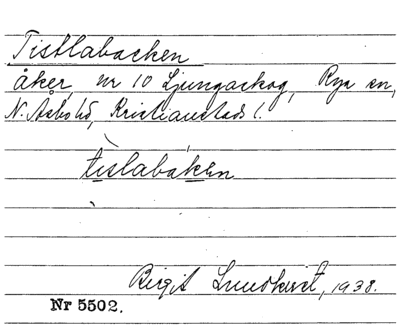 Tistlabacken
åker, nr 10 Ljungaskog, Rya sn,
N. Åsbo hd, Kristianstads l.
tislabaken
Birgit Lundkvist, 1938.
Nr 5502.